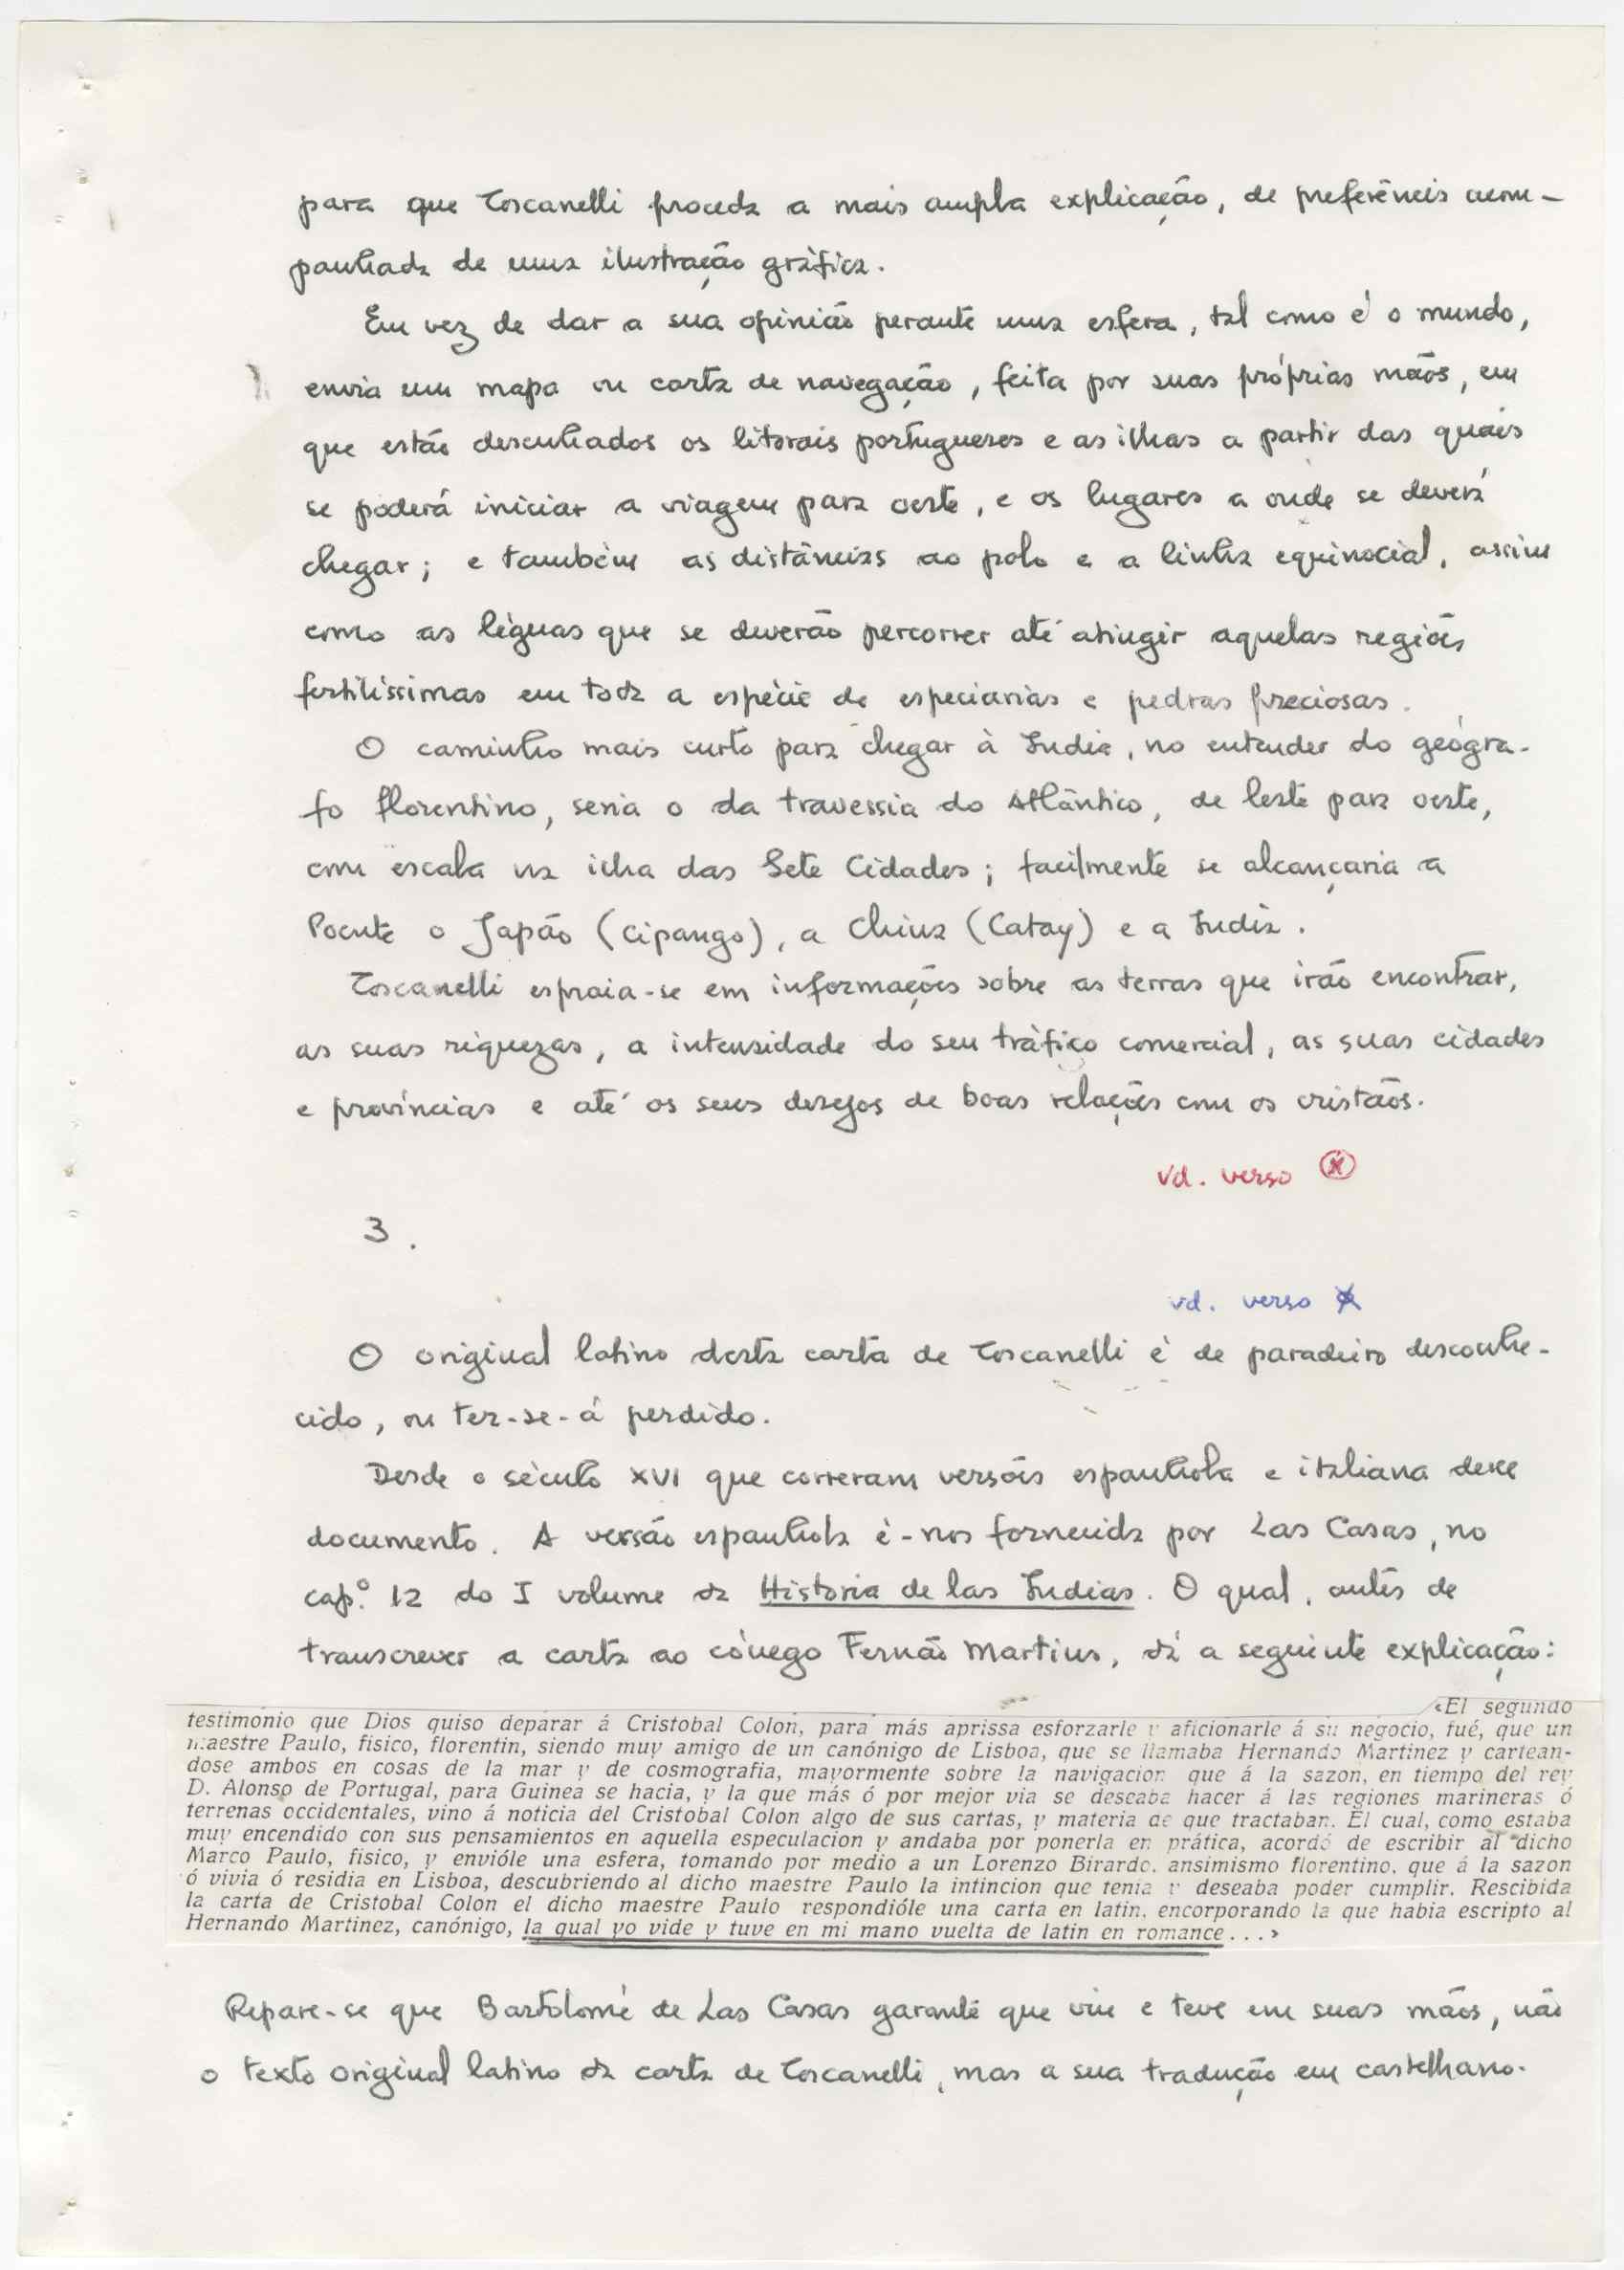 para que Toscanelli proceda a mais ampla explicação, de preferência acom-
panhada de uma ilustração gráfica.
Em vez de dar a sua opinião perante uma esfera, tal como é o mundo,
envia um mapa ou carta de navegação, feita por suas próprias mãos, em
que estão desenhados os litorais portugueses e as ilhas a partir das quais
se poderá iniciar a viagem para oeste, e os lugares a onde se deverá
chegar; e também as distâncias ao polo e a linha equinocial, assim
como as léguas que se deverão percorrer até atingir aquelas regiões
fertilíssimas em toda a espécie de especiarias e pedras preciosas.
O caminho mais curto para chegar à India, no entender do geógra-
fo florentino, seria o da travessia do Atlântico, de leste para oeste,
com escala na ilha das Sete Cidades; facilmente se alcançaria a
Poente o Japão (Cipango), a China (Catay) e a India.
Toscanelli espraia-se em informações sobre as terras que irão encontrar,
as suas riquezas, a intensidade do seu tráfico comercial, as suas cidades
e províncias e até os seus desejos de boas relações com os cristãos.
vd. verso (x)
3.
vd. verso x
O original latino desta carta de Toscanelli é de paradeiro desconhe-
cido, ou ter-se-á perdido.
Desde o século XVI que correram versões espanhola e italiana desse
documento. A versão espanhola é-nos fornecida por Las Casas, no
cap.º 12 do I volume da Historia de las Indias. O qual, antes de
transcrever a carta ao cónego Fernão Martins, dá a seguinte explicação:
«El segundo
testimonio que Dios quiso deparar á Cristobal Colon, para más aprissa esforzarle y aficionarle á su negocio, fué, que un
maestre Paulo, fisico, florentin, siendo muy amigo de un canónigo de Lisboa, que se llamaba Hernando Martinez y cartean-
dose ambos en cosas de la mar y de cosmografia, mayormente sobre la navigacion que á la sazon, en tiempo del rey
D. Alonso de Portugal, para Guinea se hacia, y la que más ó por mejor via se deseaba hacer á las regiones marineras ó
terrenas occidentales, vino á noticia del Cristobal Colon algo de sus cartas, y materia de que tractaban. El cual, como estaba
muy encendido con sus pensamientos en aquella especulacion y andaba por ponerla en prática, acordó de escribir al dicho
Marco Paulo, fisico, y envióle una esfera, tomando por medio a un Lorenzo Birardo, ansimismo florentino, que á la sazon
ó vivia ó residia en Lisboa, descubriendo al dicho maestre Paulo la intincion que tenia y deseaba poder cumplir. Rescibida
la carta de Cristobal Colon el dicho maestre Paulo respondióle una carta en latin, encorporando la que habia escripto al
Hernando Martinez, canónigo, la qual yo vide y tuve en mi mano vuelta de latin en romance...»
Repare-se que Bartolomé de Las Casas garante que viu e teve em suas mãos, não
o texto original latino da carta de Toscanelli, mas a sua tradução em castelhano.